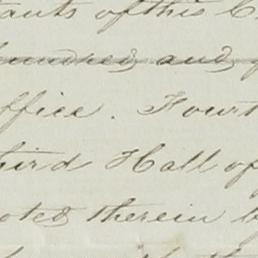 ants of this C
hundred and
ffice. Fourt
hird Hall of
oted therein b